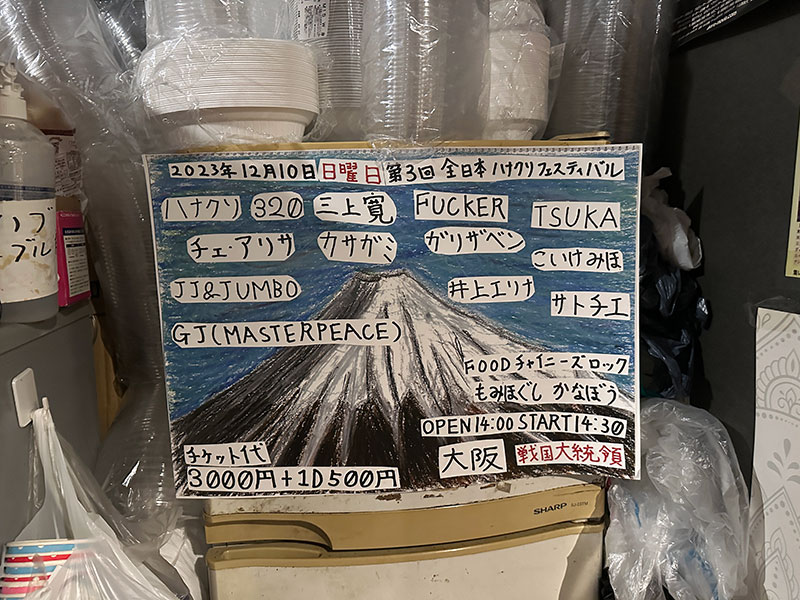 2023年12月10日 日曜日 第3回 全日本 ハナクソ フェスティバル
ハナクソ 320 三上寛 FUCKER TSUKA
チェ・アリサ クサガミ ガリザベン こいけみほ
JJ&JUMBO 井上エリナ サトチエ
GJ(MASTERPEACE)
FOODチャイニーズロック
もみほぐし かなぼう
OPEN14:00 START14:30
チケット代 大阪 戦国大統領
3000円+1D500円
SHARP